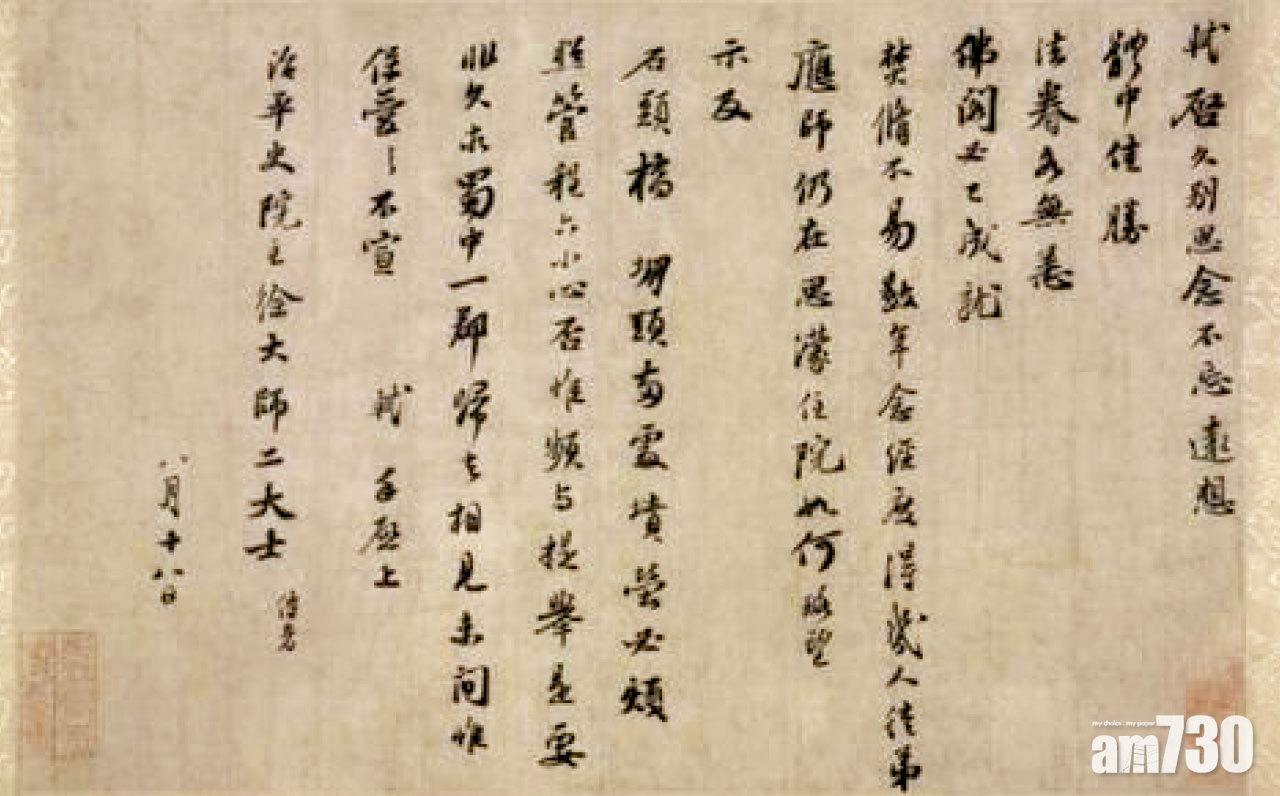 軾啓久別思念不忘遠想
體中佳勝
法眷各無恙
佛閣必已成就
焚脩不易數年念經度得幾人徒弟
應師仍在思濛住院如何略望
示及
石頭橋堋頭兩處墳塋必煩
照管程六小心否惟頻与提舉是要
非久求蜀中一郡歸去相見未間惟
保愛之不宣 軾手啓上
治平史院主徐大師二大士 侍者
八月十八日
my choice . my paper
am730